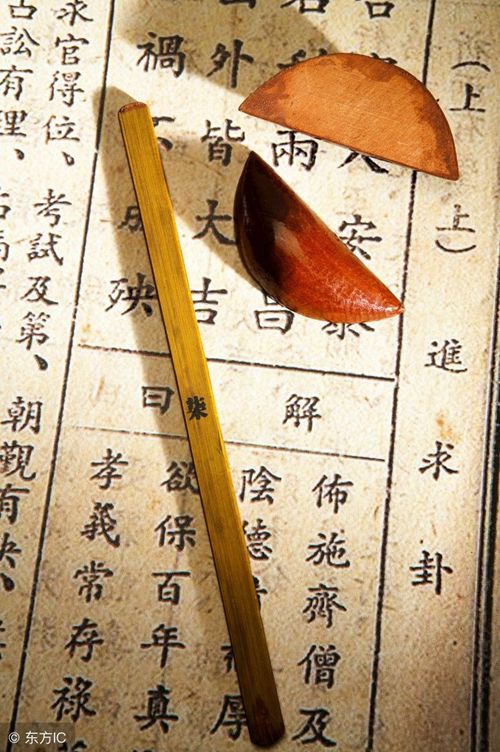 （上上）進求卦
人安泰
利兩昌
外皆大吉
禍不成殃
解曰
佈施齊僧及
陰德厚
欲保百年真
孝義常存祿
求官得位、考試及第、朝觀有
占訟有理、
柒
© 东方IC